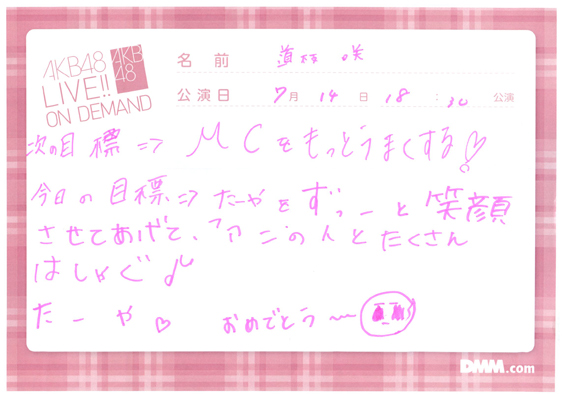 AKB48
LIVE!!
ON DEMAND
AKB
48
名前 道枝 咲
公演日 7月 14日 18:30 公演
次の目標⇒ MCをもっとうまくする♡
今日の目標⇒ たーやをずっーと笑顔
させてあげて、ファンの人とたくさん
はしゃぐ♪
たーや♡ おめでとう〜
DMM.com